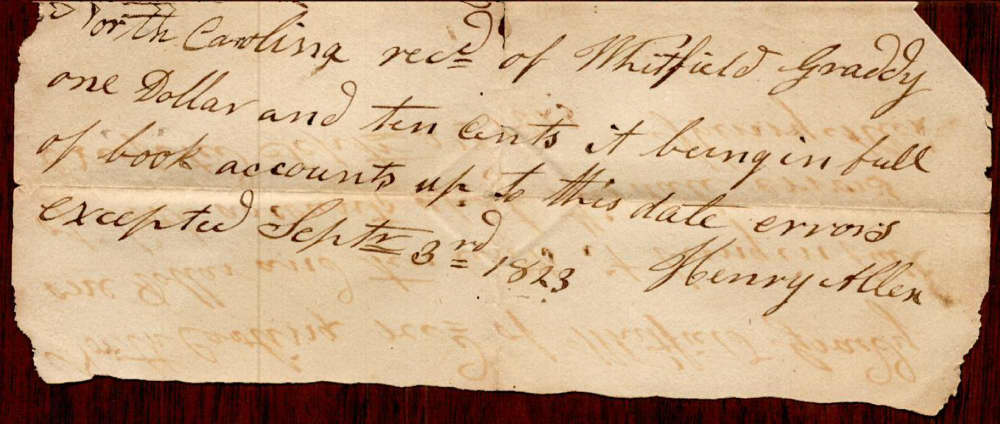 North Carolina recd of Whitfield Graddy
one Dollar and ten cents it being in full
of book accounts up to this date errors
excepted Septr 3rd 1823 Henry Allen